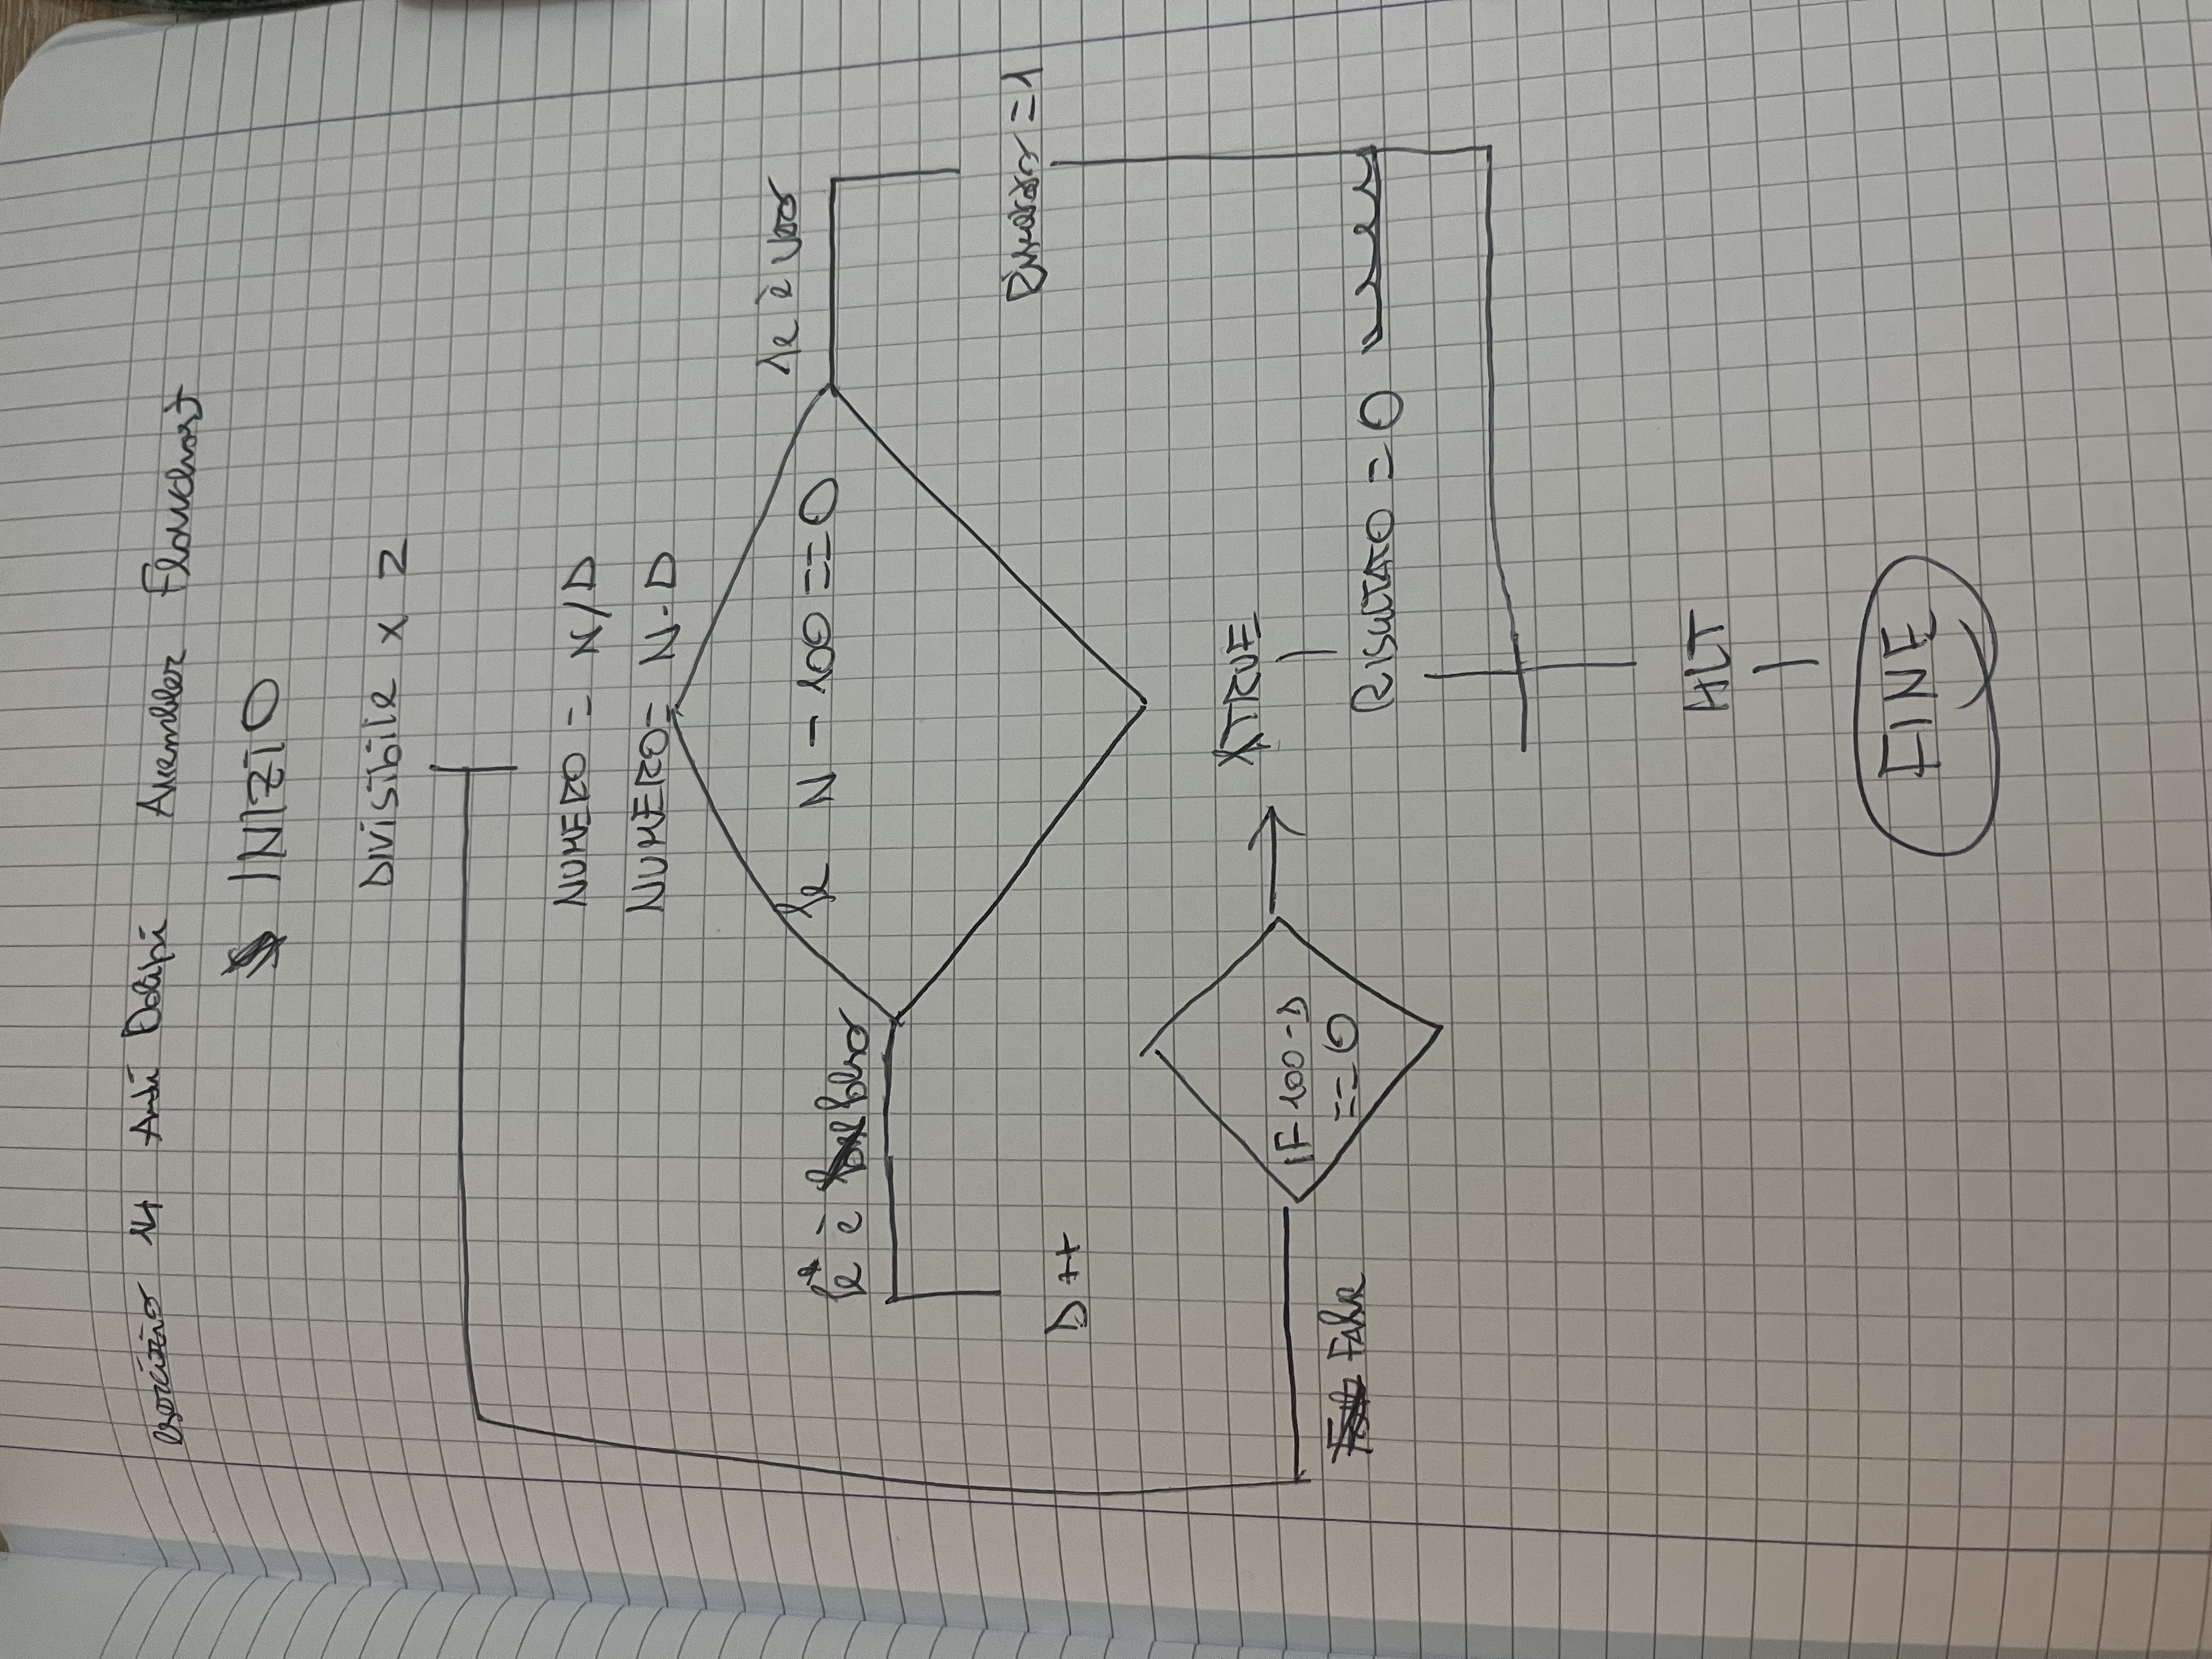 esercizio 14 Andi Dolapi Assembler Flowchart
INIZIO
DIVISIBILE x 2
NUMERO = N/D
NUMERO = N-D
se è vero
se N - 100 == 0
se è falso
Risultato = 1
D ++
TRUE
IF 100 - D
== 0
False
RISULTATO = 0
HLT
FINE